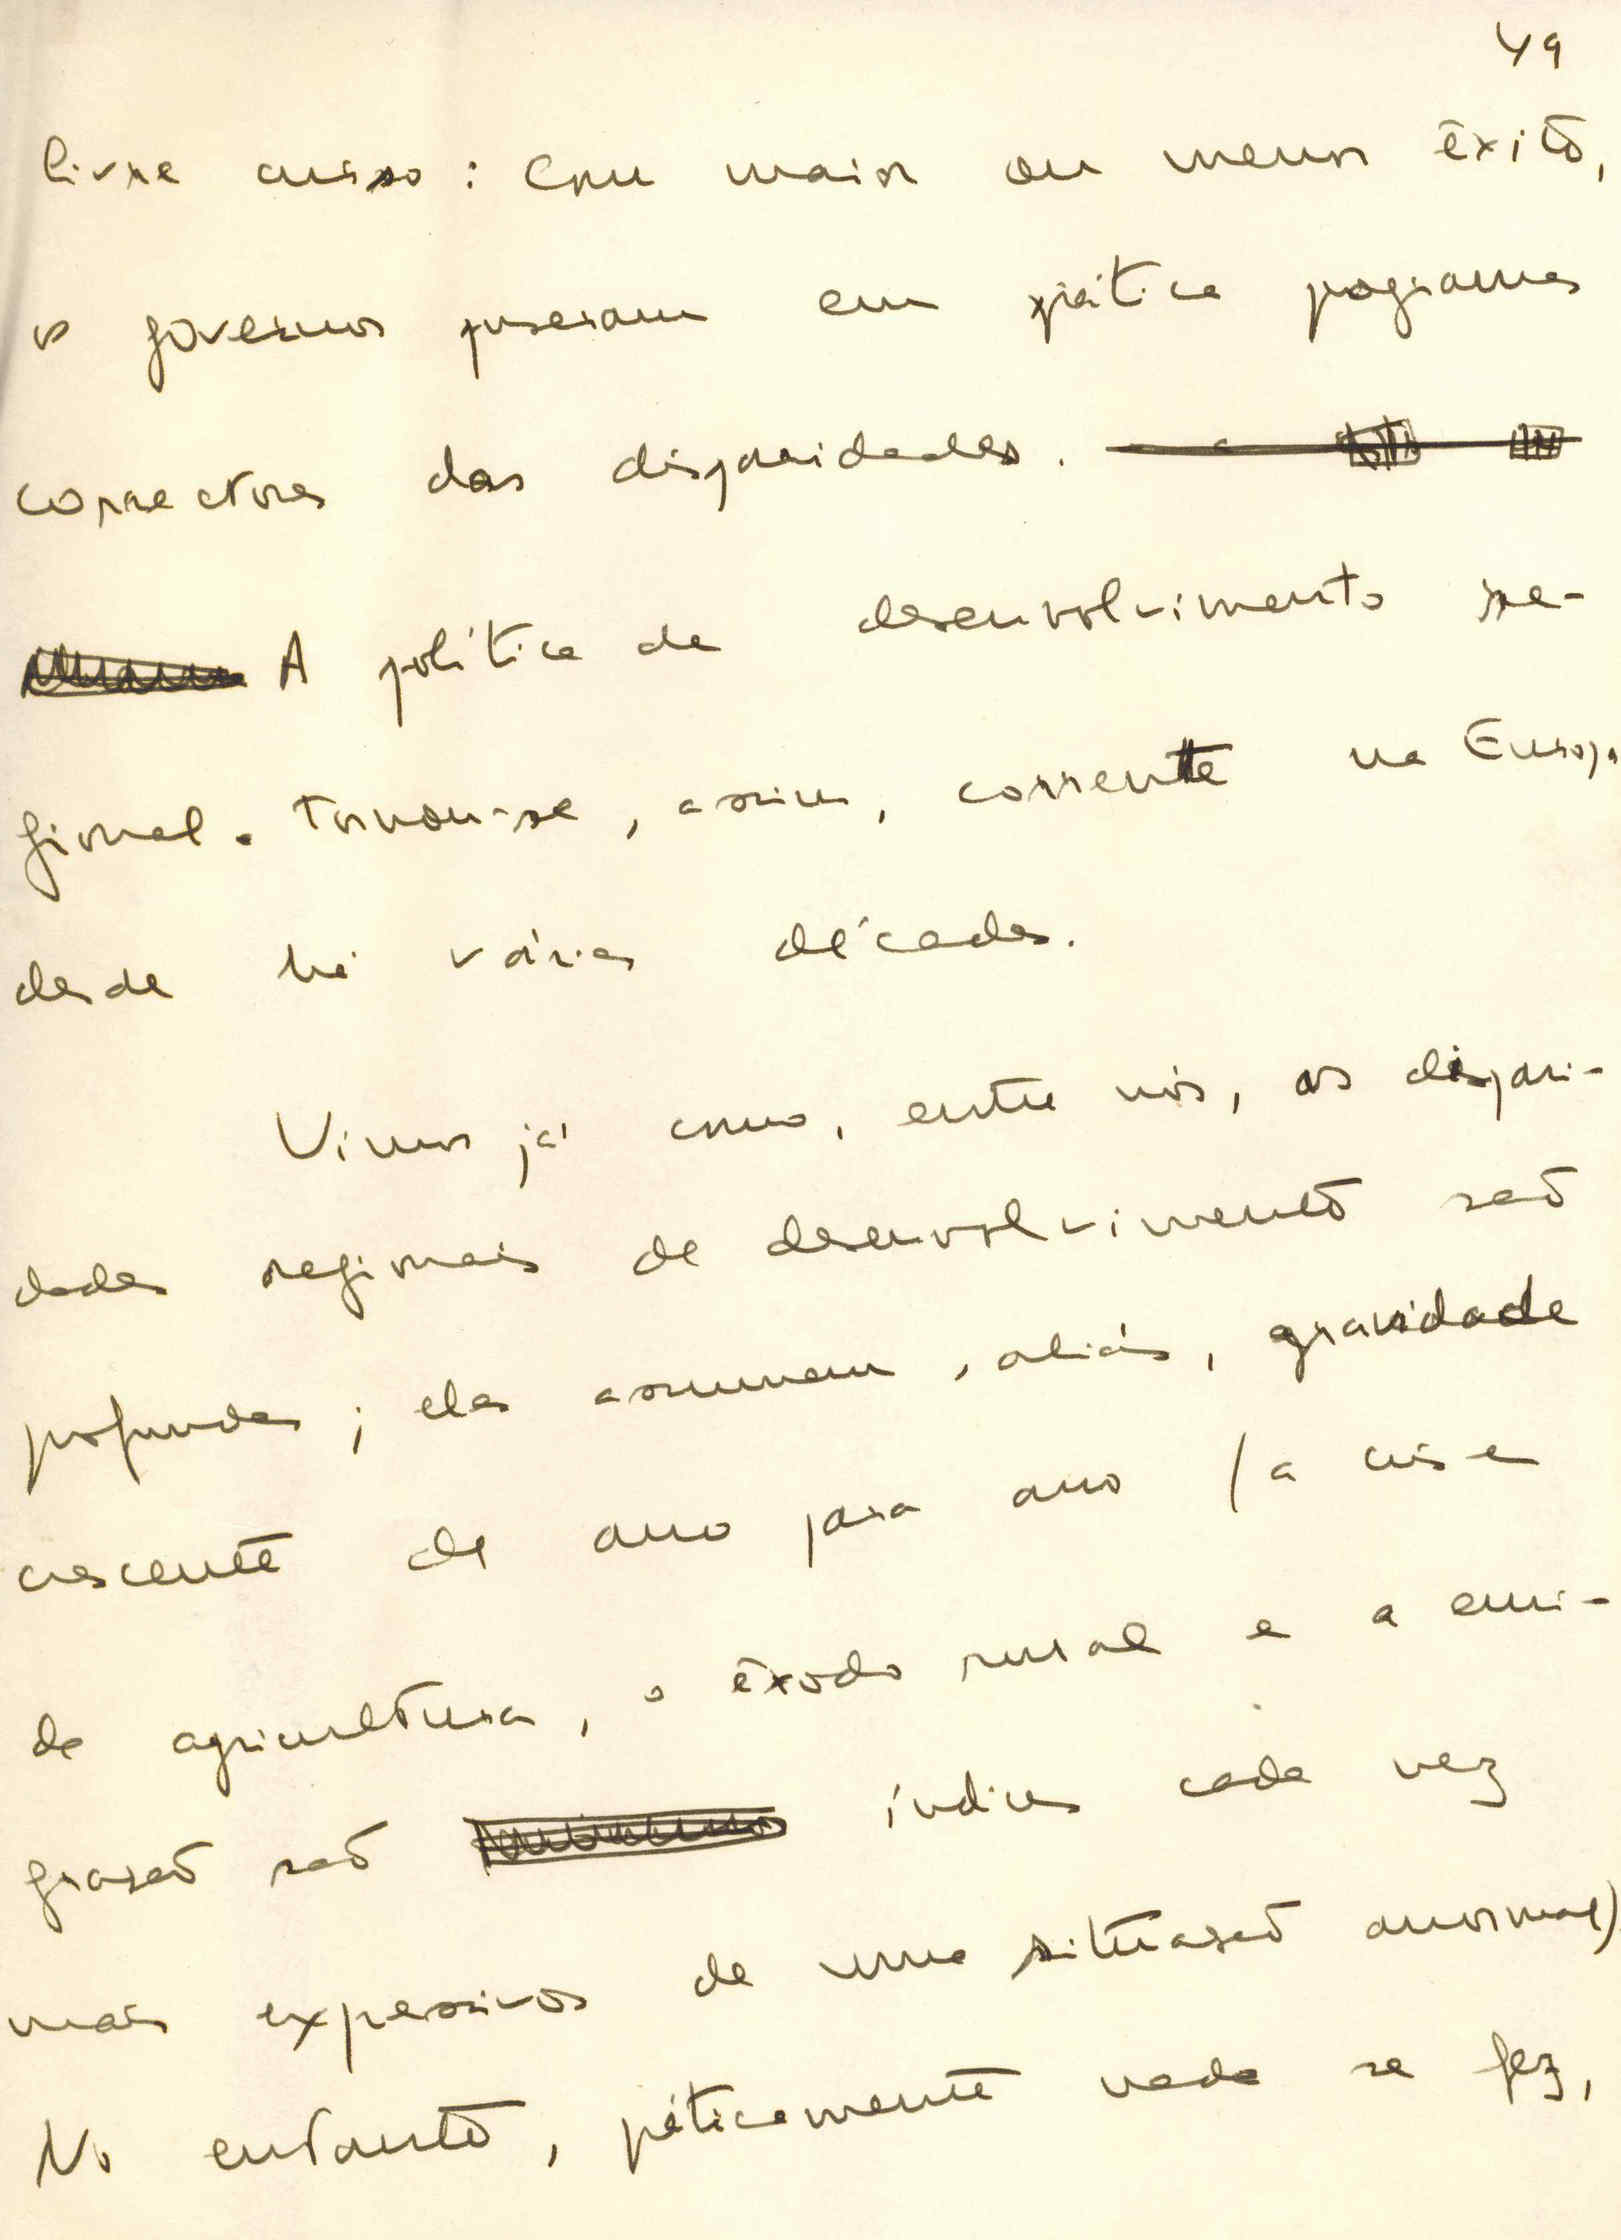 49
livre curso: Com maior ou menor êxito,
os governos puseram em prática programas
correctores das disparidades.
A política de desenvolvimento re-
gional. tornou-se, assim, corrente na Europa
desde há várias décadas.
Vimos já como, entre nós, as dispari-
dades regionais de desenvolvimento são
profundas; elas assumem, aliás, gravidade
crescente de ano para ano (a crise
da agricultura, o êxodo rural e a emi-
gração são índices cada vez
mais expressivos de uma situação anormal)
No entanto, práticamente nada se fez,